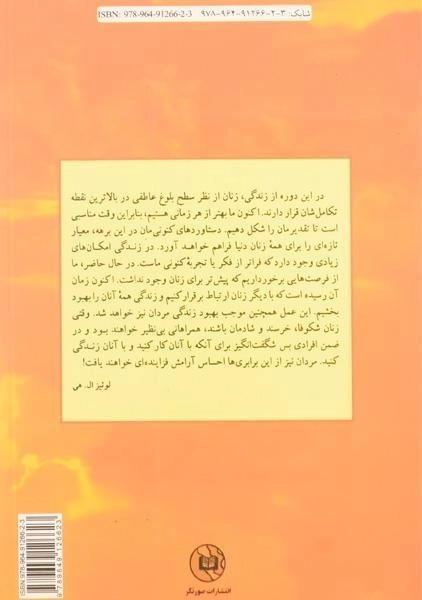 شابک: ۳-۲-۹۱۲۶۶-۹۶۴-۹۷۸ ISBN: 978-964-91266-2-3
در این دوره از زندگی، زنان از نظر سطح بلوغ عاطفی در بالاترین نقطه
تکامل‌شان قرار دارند. اکنون ما بهتر از هر زمانی هستیم، بنابراین وقت مناسبی
است تا تقدیرمان را شکل دهیم. دستاوردهای کنونی‌مان در این برهه، معیار
تازه‌ای را برای همهٔ زنان دنیا فراهم خواهد آورد. در زندگی امکان‌های
زیادی وجود دارد که فراتر از فکر یا تجربهٔ کنونی ماست. در حال حاضر، ما
از فرصت‌هایی برخورداریم که پیش‌تر برای زنان وجود نداشت. اکنون زمان
آن رسیده است که با دیگر زنان ارتباط برقرار کنیم و زندگی همهٔ آنان را بهبود
بخشیم. این عمل همچنین موجب بهبود زندگی مردان نیز خواهد شد. وقتی
زنان شکوفا، خرسند و شادمان باشند، همراهانی بی‌نظیر خواهند بود و در
ضمن افرادی بس شگفت‌انگیز برای آنکه با آنان کار کنید و با آنان زندگی
کنید. مردان نیز از این برابری‌ها احساس آرامش فزاینده‌ای خواهند یافت!
لوئیز ال. هی
ISBN: 978-964-91266-2-3
9 789649 126623
انتشارات صورتگر